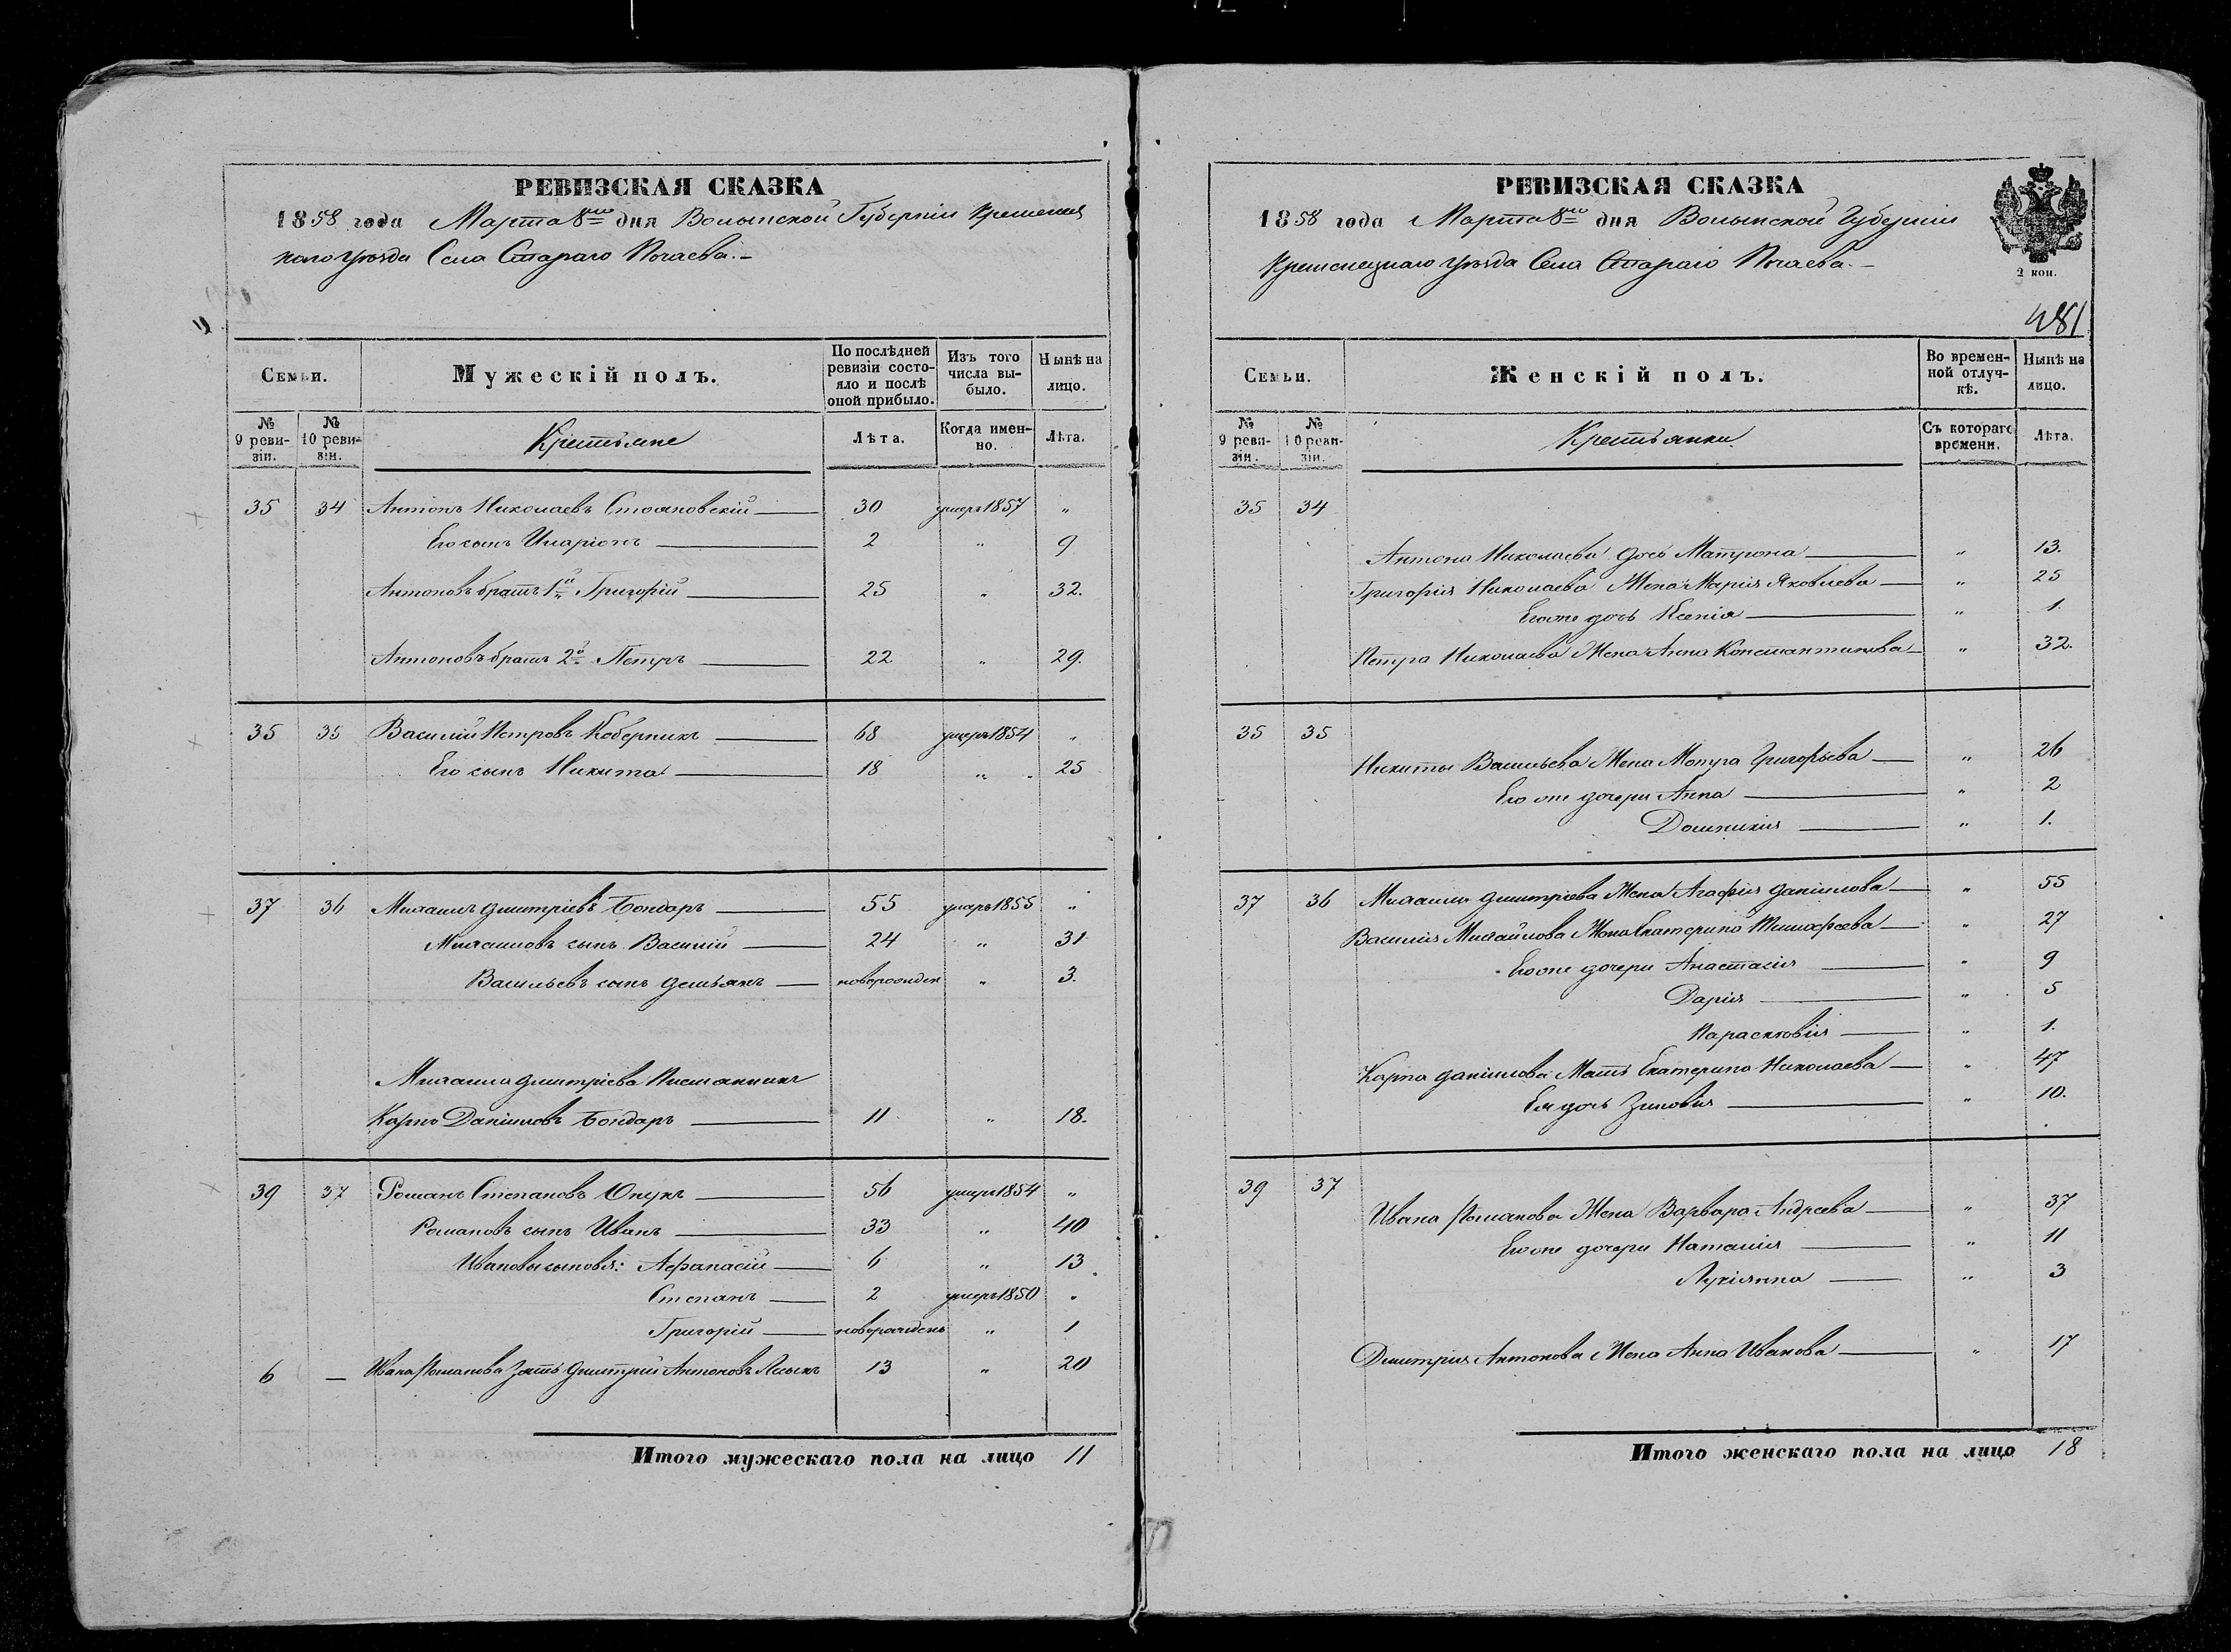 РЕВИЗСКАЯ СКАЗКА
1858 года Марта 8го дня Волынской Губерніи Кременец
каго Уѣзда Села Стараго Почаева.
Семьи.
Мужескій полъ.
По послѣдней ревизіи состояло и послѣ оной прибыло.
Изъ того числа выбыло.
Нынѣ на лицо.
№ 9 ревизіи.
№ 10 ревизіи.
Крестьяне
Лѣта.
Когда именно.
Лѣта.
35 34 Антонъ Николаевъ Стояновскій 30 умеръ 1857 "
Его сынъ Иларіонъ 2 " 9
Антоновъ братъ 1й Григорій 25 " 32.
Антоновъ братъ 2й Петръ 22 " 29.
35 35 Василій Петровъ Коберникъ 68 умеръ 1854 "
Его сынъ Никита 18 " 25
37 36 Михаилъ Дмитріевъ Бондаръ 55 умеръ 1855 "
Михаиловъ сынъ Василій 24 " 31
Васильевъ сынъ Демьянъ новорожден " 3.
Михаила Дмитріева Племянникъ
Карпъ Даніиловъ Бондаръ 11 " 18.
39 37 Романъ Степановъ Опукъ 56 умеръ 1854 "
Романовъ сынъ Иванъ 33 " 40
Ивановы сыновья: Афанасій 6 " 13
Степанъ 2 умеръ 1850 "
Григорій новорожденъ " 1
6 — Ивана Романова Зять Дмитрій Антоновъ 13 " 20
Итого мужескаго пола на лицо 11
РЕВИЗСКАЯ СКАЗКА
1858 года Марта 8го дня Волынской Губерніи
Кременецкаго Уѣзда Села Стараго Почаева.
2 коп.
481
Семьи.
Женскій полъ.
Во временной отлучкѣ.
Нынѣ на лицо.
№ 9 ревизіи.
№ 10 ревизіи.
Крестьянки
Съ котораго времени.
Лѣта.
35 34
Антона Николаева дочь Матрона " 13.
Григорія Николаева Жена Марія Яковлева " 25
Егоже дочь Ксенія " 1.
Петра Николаева Жена Анна Константинова " 32.
35 35
Никиты Васильева Жена Мотура Григорьева " 26
Егоже дочери Анна " 2
Домникия " 1.
37 36 Михаила Дмитріева Жена Агафия Даніилова " 55
Василія Михайлова Жена Екатерина Тимофеева " 27
Егоже дочери Анастасія " 9
Дарія " 5
Параскговія " 1.
Карпа Даніилова Мать Екатерина Николаева " 47
Ея дочь Зиновія " 10.
39 37
Ивана Романова Жена Варвара Андреева " 37
Егоже дочери Наталія " 11
Лукіянна " 3
Дмитрия Антонова Жена Анна Иванова " 17
Итого женскаго пола на лицо 18